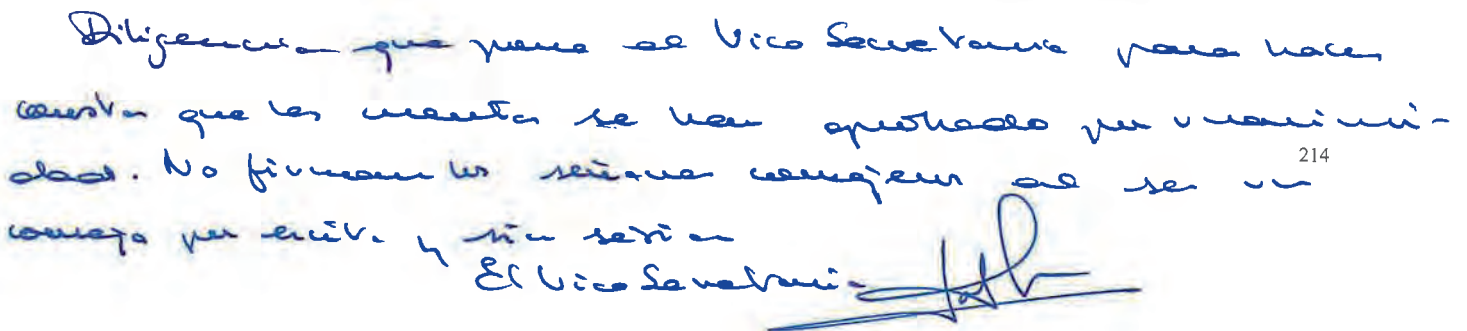 Diligencia que pone el Vico Secretario para hacer
constar que las cuentas se han aprobado por unanimi-
dad. No firman los señores consejeros al ser un
214
consejo por escrito y sin sesion
El Vico Secretario